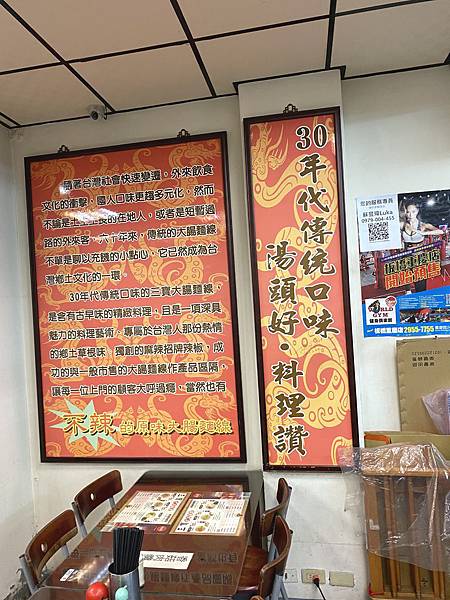 隨著台灣社會快速變遷，外來飲食
文化的衝擊，國人口味更趨多元化，然而
不論是土生土長的在地人，或者是短暫過
路的外來客，六丫年來，傳統的大腸麵線
不單是聊以充饑的小點心，它已然成為台
灣鄉土文化的一環。
30年代傳統口味的三寶大腸麵線，
是含有古早味的精緻料理，且是一項深具
魅力的料理藝術，專屬於台灣人那份熱情
的鄉土草根味，獨創的麻辣招牌辣椒，成
功的與一般市售的大腸麵線作產品區隔，
讓每一位上門的顧客大呼過癮，當然也有
不辣的原味大腸麵線
30年代傳統口味
湯頭好·料理讚
您的服務專員
蘇昱瑋Luka
0979-004-455
板橋重慶店
開始預售
WORLD
GYM
世界健身俱樂部
板橋重慶店 2955-7755